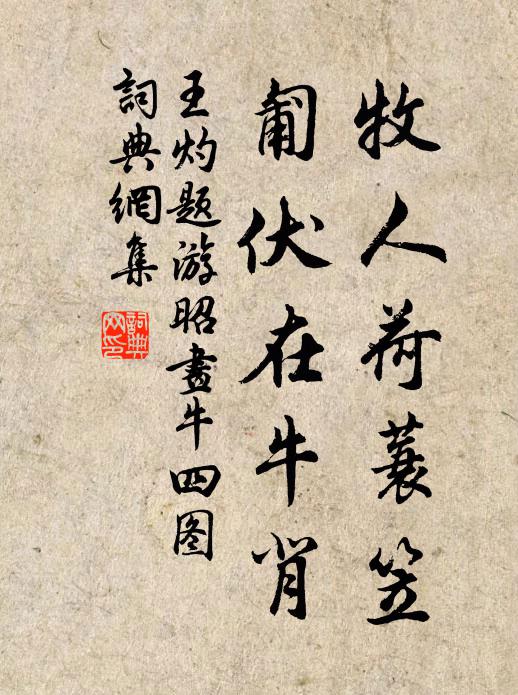 牧人荷蓑笠
匍伏在牛背
王灼题游昭畫牛四图
詞典網集
詞典網印